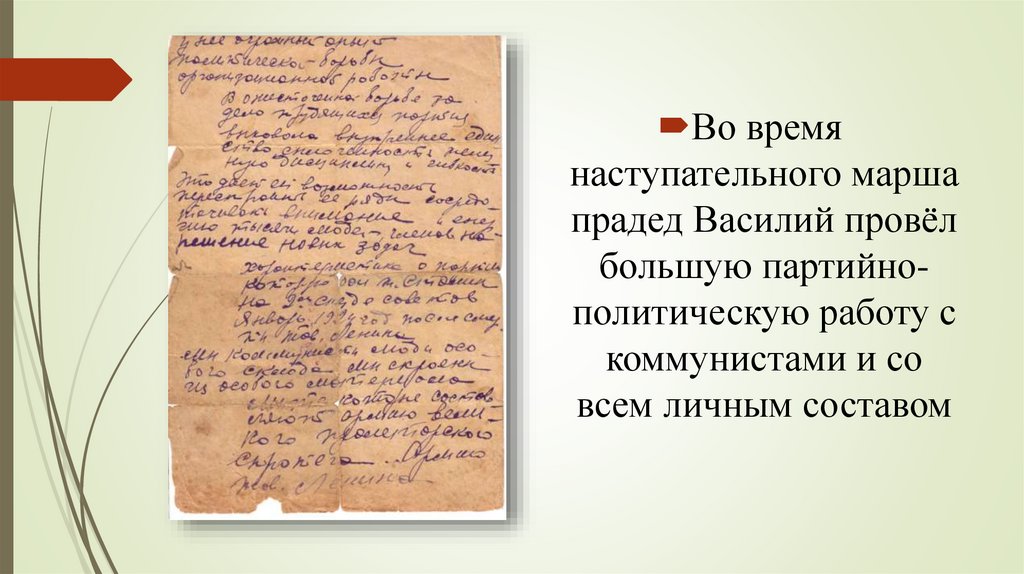 у нее огромный опыт
политической борьбы
организационной работы
В ожесточенной борьбе за
дело трудящихся партия
выковала внутреннее един
ство сплоченность
ную дисциплину и гибкость
Это дает ей возможность
перестроить ее ряды сосредо
точивать внимание енер
гию тысячи людей – членов на
решение новых задач
характеристика о партии
которую дал т. Сталин
на 2ом съезде советов
Январь 1924 год после смер
ти тов. Ленина
мы коммунисты люди осо
бого склада мы скроены
из особого материала
мы те которые состав
ляют армию вели
кого пролетарского
стратега... Армию
тов. Ленина
Во время
наступательного марша
прадед Василий провёл
большую партийно-
политическую работу с
коммунистами и со
всем личным составом